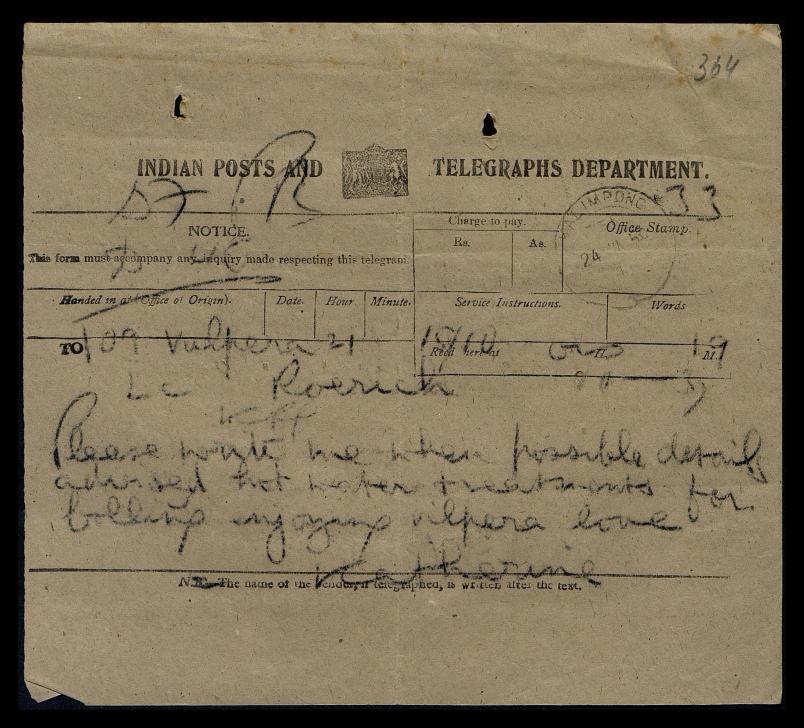 364
INDIAN POSTS AND TELEGRAPHS DEPARTMENT.
33
NOTICE.
This form must accompany any inquiry made respecting this telegram.
Charge to pay.
Rs. As.
Office Stamp.
KALIMPONG
24
Handed in at (Office of Origin). Date. Hour Minute. Service Instructions. Words
TO 109 Vulpera 21 19
Recd here at H. M.
Lc Roerich
Please write me when possible detail
advised hot water treatments for
enjoying vulpera love
Katherine
N.B. The name of the sender, if telegraphed, is written after the text.